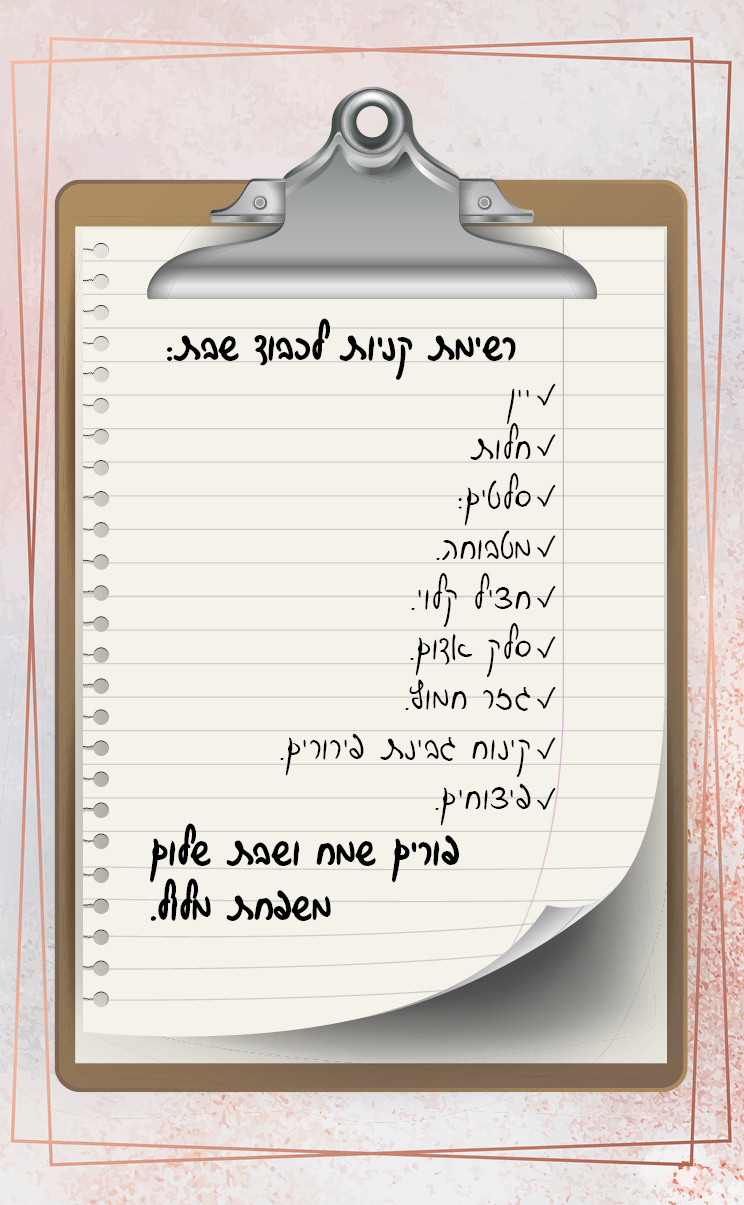 רשימת קניות לכבוד שבת:
✓ יין
✓ חלות
✓ סלטים:
✓ מטבוחה.
✓ חציל קלוי.
✓ סלק אדום.
✓ גזר חמוץ.
✓ קינוח גבינת פירורים.
✓ פיצוחים.
פורים שמח ושבת שלום
משפחת מלול.